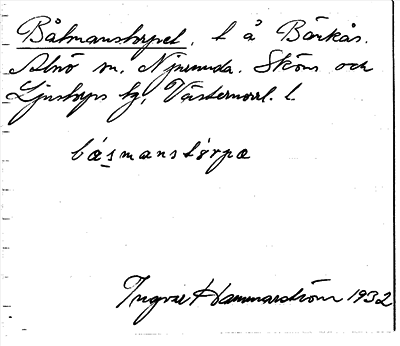 Båtmanstorpet, t å Bärkås.
Alnö sn. Njurunda, Sköns och
Ljustorps tg, Västernorrl. l.
båsmanstôrpæ
Ingvar Hammarström 1932